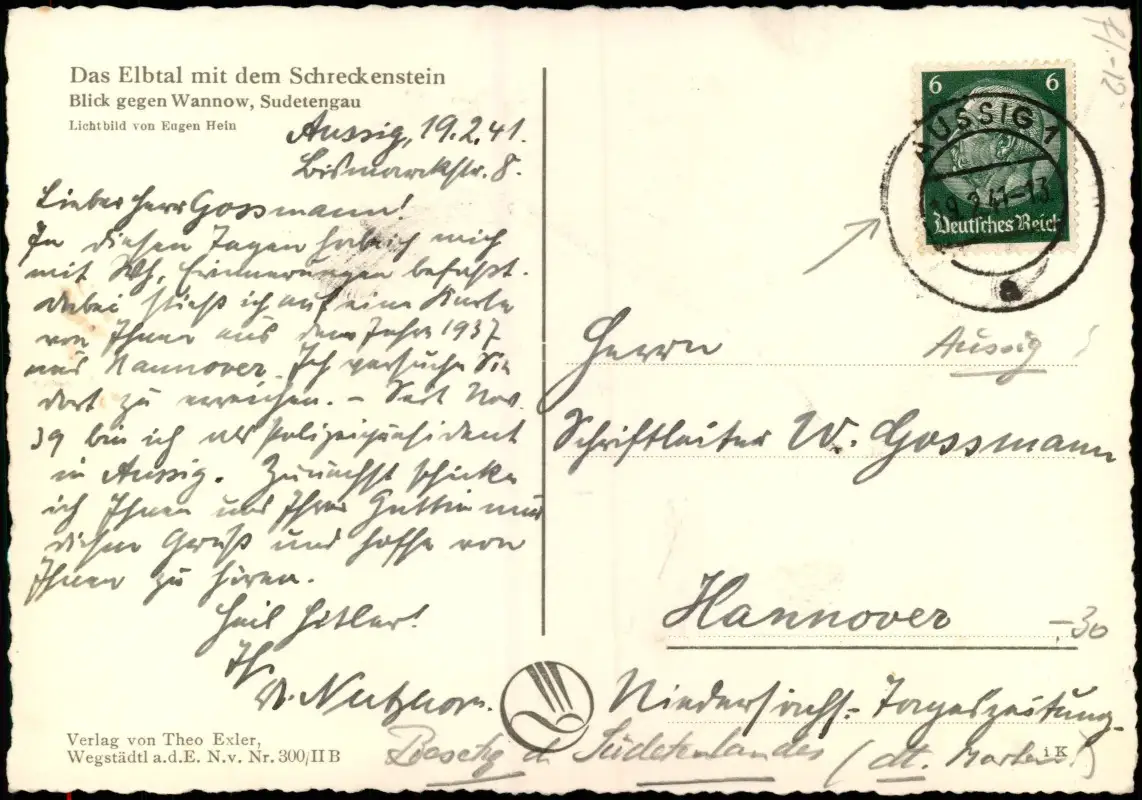 Das Elbtal mit dem Schreckenstein
Blick gegen Wannow, Sudetengau
Lichtbild von Eugen Hein
Aussig, 19.2.41.
Bismarckstr. 8.
Lieber Herr Gossmann!
In diesen Tagen habe ich mich
mit Erinnerungen befaßt.
Dabei stieß ich auf eine Karte
von Ihnen aus dem Jahr 1937
aus Hannover. Ich versuche Sie
dort zu erreichen. – Seit Nov.
39 bin ich als Polizeipräsident
in Aussig. Zunächst schicke
ich Ihnen und Ihrer Gattin nur
diesen Gruß und hoffe von
Ihnen zu hören.
Heil Hitler!
Ihr
Verlag von Theo Exler,
Wegstädtl a.d.E. N.v. Nr. 300/II B
6 6
Deutsches Reich
AUSSIG 1
19.2.41-13
a
Herrn
Aussig
Schriftleiter W. Gossmann
Hannover
-.30
Niedersächs. Tageszeitung.
d. Sudetenlandes (dt. Marken)
i K